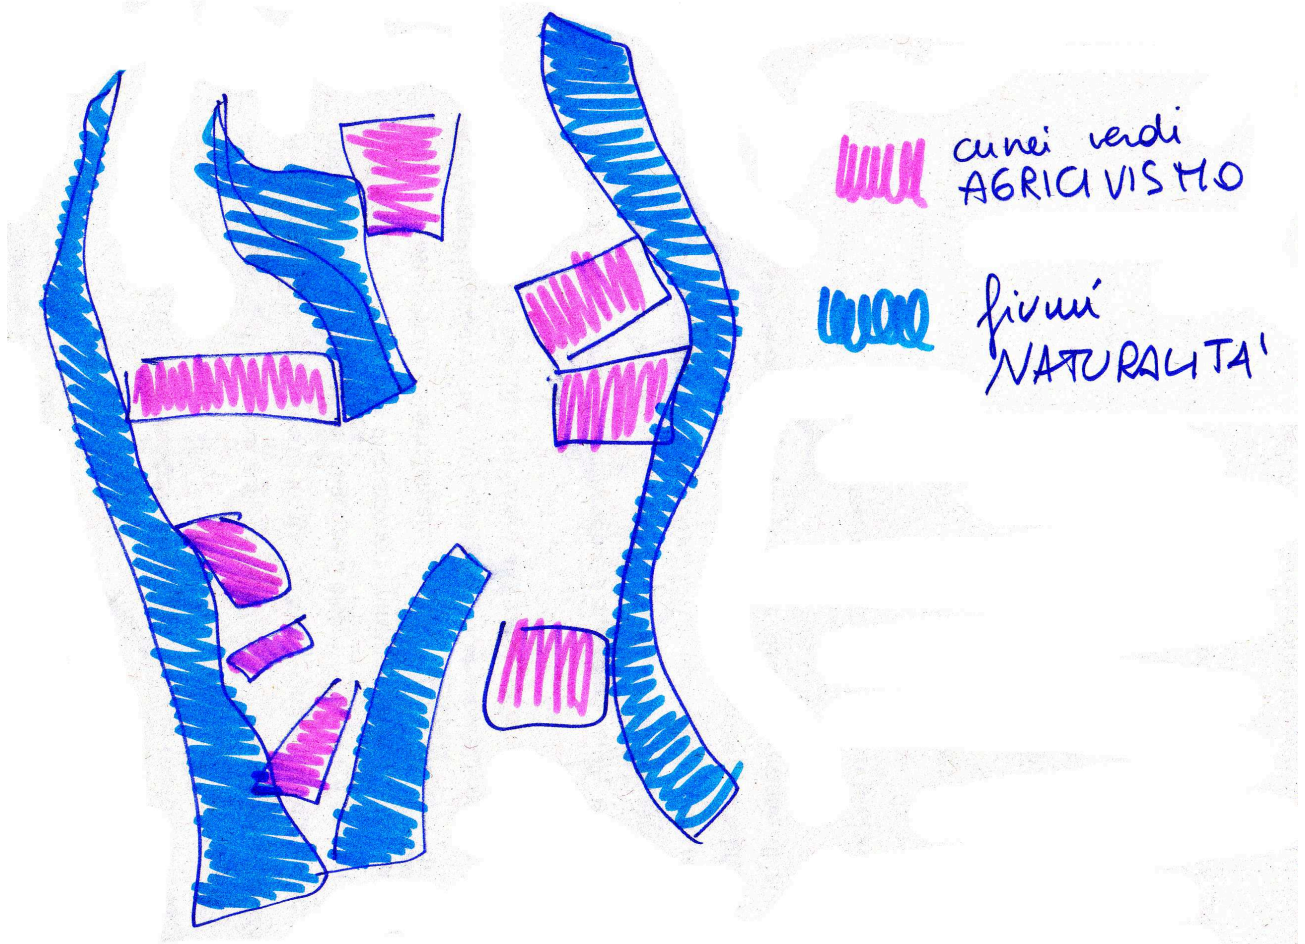 cunei verdi
AGRICIVISMO
fiumi
NATURALITA'